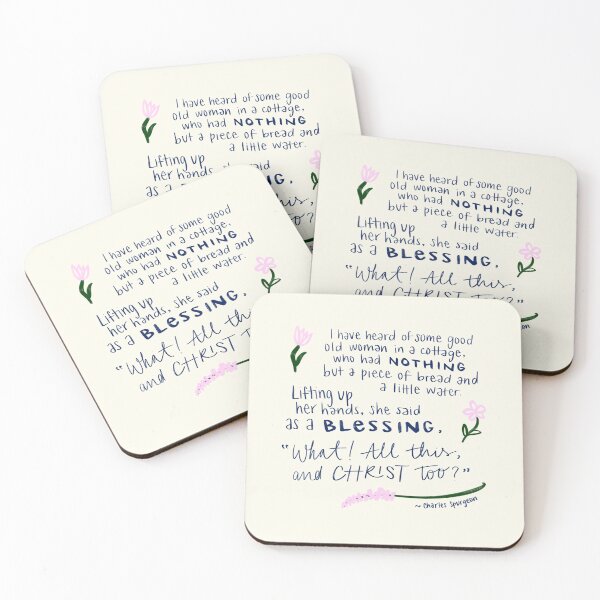 I have heard of some good
old woman in a cottage,
who had NOTHING
but a piece of bread and
a little water.
Lifting up
her hands, she said
as a BLESSING,
this,
I have heard of some good
old woman in a cottage,
who had NOTHING
but a piece of bread and
a little water.
Lifting up
her hands, she said
as a BLESSING,
"What! All this,
and CHRIST too?"
I have heard of some good
old woman in a cottage,
who had NOTHING
but a piece of bread and
a little water.
Lifting up
her hands, she said
as a BLESSING,
"What! All this
and CHRIST
I have heard of some good
old woman in a cottage,
who had NOTHING
but a piece of bread and
a little water.
Lifting up
her hands, she said
as a BLESSING,
"What! All this,
and CHRIST TOO?"
~ Charles Spurgeon